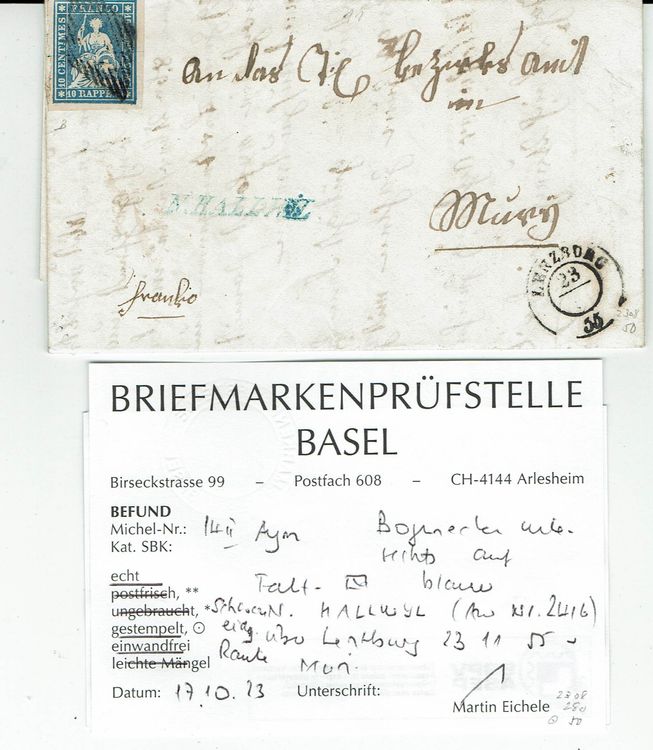 FRANCO
10 CENTIMES
10 RAPPEN
An das Tit. Bezirks Amt
im
Mury
N. HALLWYL
franko
LENZBURG
23
55
2308
50
BRIEFMARKENPRÜFSTELLE
BASEL
Birseckstrasse 99 – Postfach 608 – CH-4144 Arlesheim
BEFUND
Michel-Nr.: 14 II Aym
Kat. SBK:
Bogenecke unten
rechts auf
echt
postfrisch, ** Falt- blauer
ungebraucht, * N. HALLWYL (AW Nr. 2416)
gestempelt, ⊙ über Lenzburg 23 11 55
einwandfrei Raute Muri.
leichte Mängel
Datum: 17.10.23 Unterschrift:
Martin Eichele
2308
280
50